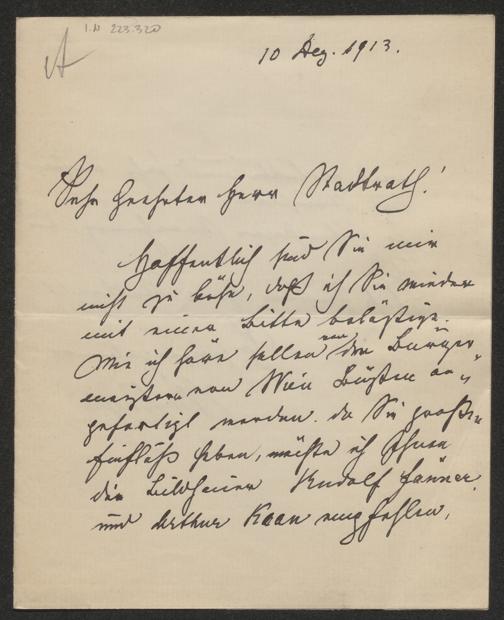 I.N 223.320
A
10 Dez. 1913.
Sehr geehrter Herr Stadtrath!
Hoffentlich sind Sie mir
nicht zu böse, daß ich Sie wieder
mit einer Bitte belästige.
Wie ich höre sollen von den Bürger
meistern von Wien Büsten an„
gefertigt werden. da Sie großen
Einfluß haben, möchte ich Ihnen
die Bildhauer Rudolf
und Arthur Kaan empfehlen,